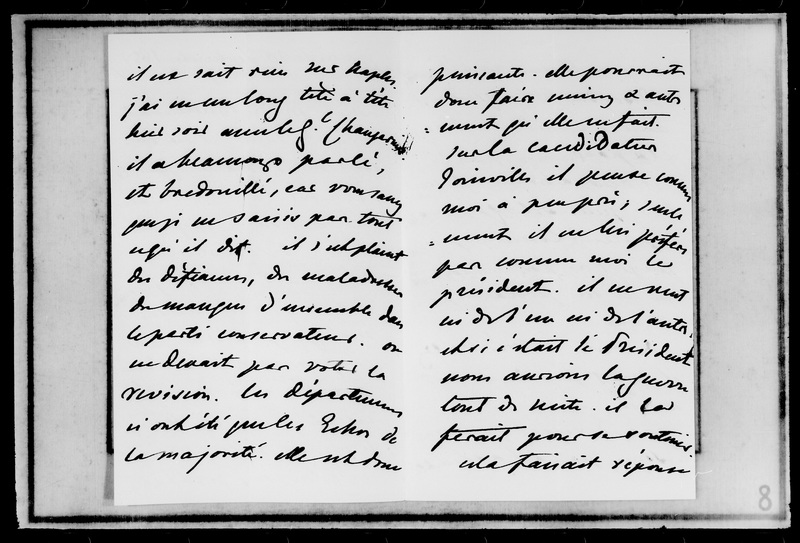 il ne sait rien sur Naples.
j'ai eu un long tête à tête
hier soir avec le Gl. Changarnier
il a beaucoup parlé,
et bredouillé, car vous savez
que je ne saisis pas tout
ce qu'il dit. il s'est plaint
des défiances, des maladresses
du manque d'ensemble dans
le parti conservateur. on
ne devait pas voter la
révision. les départements
n'ont été que les Echos de
la majorité. elle est donc
puissante. elle pourrait
donc faire mieux et autre
=ment qu'elle ne fait.
sur la candidature
Joinville il pense comme
moi à peu près, seule
=ment il ne lui préfère
pas comme moi le
président. il ne veut
ni de l'un ni de l'autre.
et si c'était le Président
nous aurions la guerre
tout de suite. il la
ferait pour se soutenir.
cela faisait réponse
8